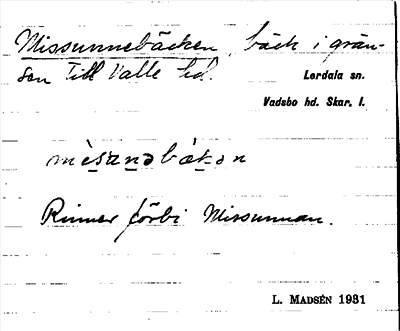 Missunnebäcken, bäck i grän-
sen till Valle hd.
Lerdala sn.
Vadsbo hd. Skar. l.
mèsanəbäkən
Rinner förbi Missunnan.
L. MADSÉN 1931